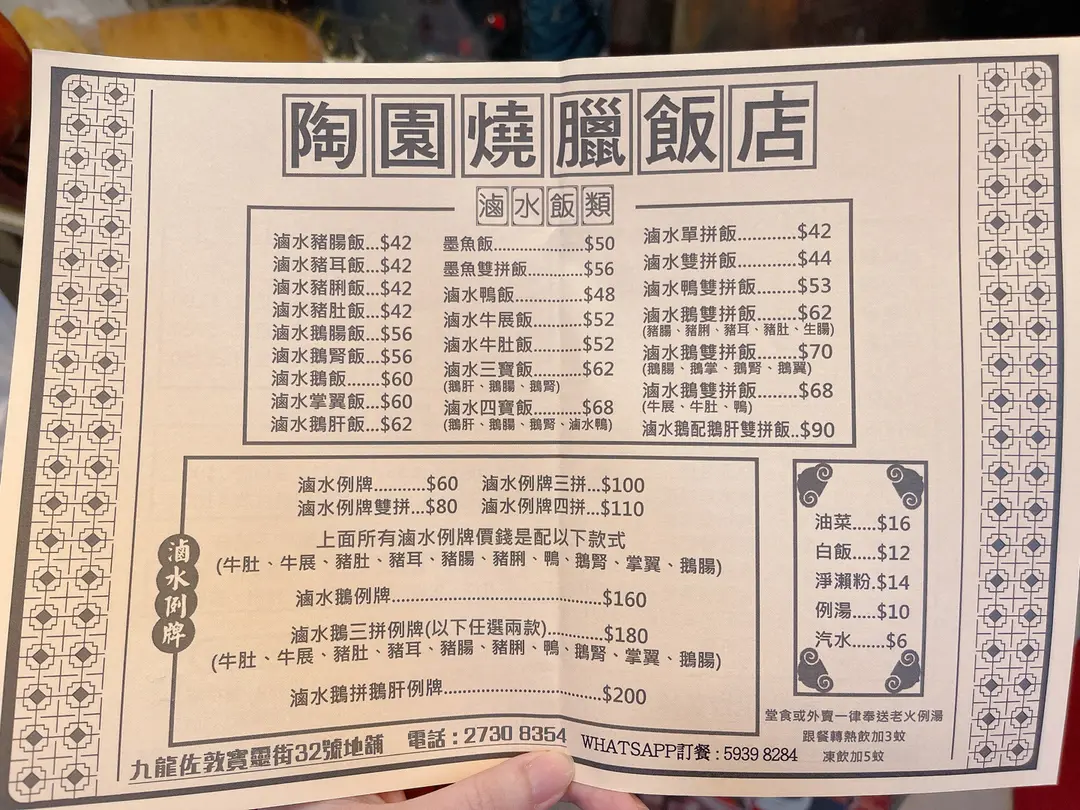 陶園燒臘飯店
滷水飯類
滷水豬腸飯...$42
滷水豬耳飯...$42
滷水豬脷飯...$42
滷水豬肚飯...$42
滷水鵝腸飯...$56
滷水鵝腎飯...$56
滷水鵝飯...$60
滷水掌翼飯...$60
滷水鵝肝飯...$62
墨魚飯...............$50
墨魚雙拼飯..........$56
滷水鴨飯............$48
滷水牛展飯..........$52
滷水牛肚飯..........$52
滷水三寶飯..........$62
(鵝肝、鵝腸、鵝腎)
滷水四寶飯..........$68
(鵝肝、鵝腸、鵝腎、滷水鴨)
滷水單拼飯...........$42
滷水雙拼飯...........$44
滷水鴨雙拼飯........$53
滷水鵝雙拼飯........$62
(豬腸、豬脷、豬耳、豬肚、生腸)
滷水鵝雙拼飯........$70
(鵝腸、鵝掌、鵝腎、鵝翼)
滷水鵝雙拼飯........$68
(牛展、牛肚、鴨)
滷水鵝配鵝肝雙拼飯..$90
滷水例牌
滷水例牌..........$60 滷水例牌三拼...$100
滷水例牌雙拼...$80 滷水例牌四拼...$110
上面所有滷水例牌價錢是配以下款式
(牛肚、牛展、豬肚、豬耳、豬腸、豬脷、鴨、鵝腎、掌翼、鵝腸)
滷水鵝例牌........................................$160
滷水鵝三拼例牌(以下任選兩款)...........$180
(牛肚、牛展、豬肚、豬耳、豬腸、豬脷、鴨、鵝腎、掌翼、鵝腸)
滷水鵝拼鵝肝例牌..............................$200
油菜.....$16
白飯.....$12
淨瀨粉.$14
例湯.....$10
汽水.......$6
堂食或外賣一律奉送老火例湯
跟餐轉熱飲加3蚊
凍飲加5蚊
九龍佐敦寶靈街32號地舖 電話:2730 8354 WHATSAPP訂餐:5939 8284